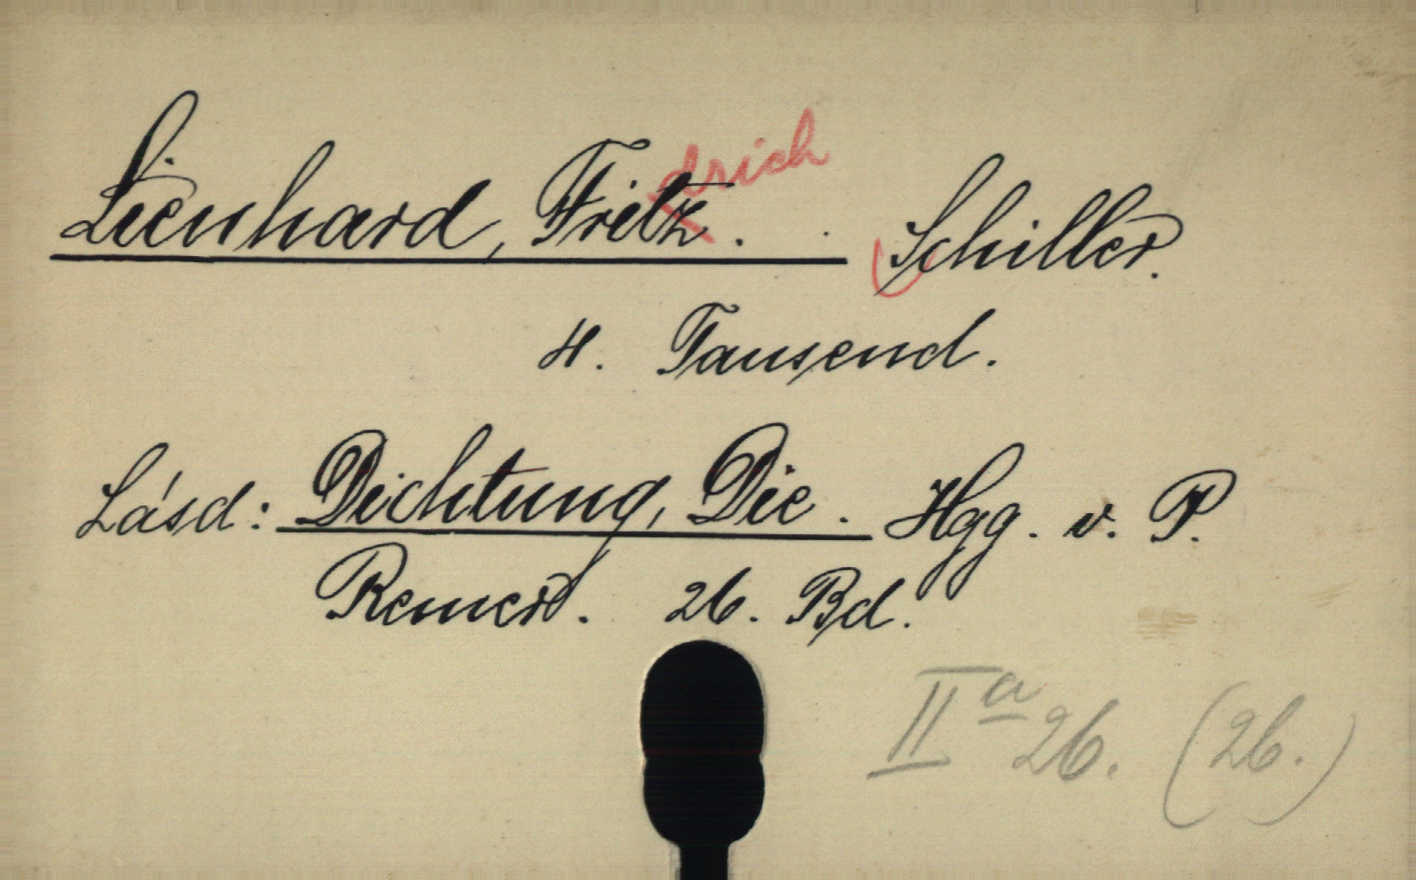 Lienhard, Fritz. drich Schiller.
4. Tausend.
Lásd: Dichtung, Die. Hgg. v. P.
Remer. 26. Bd.
IIa 26. (26.)